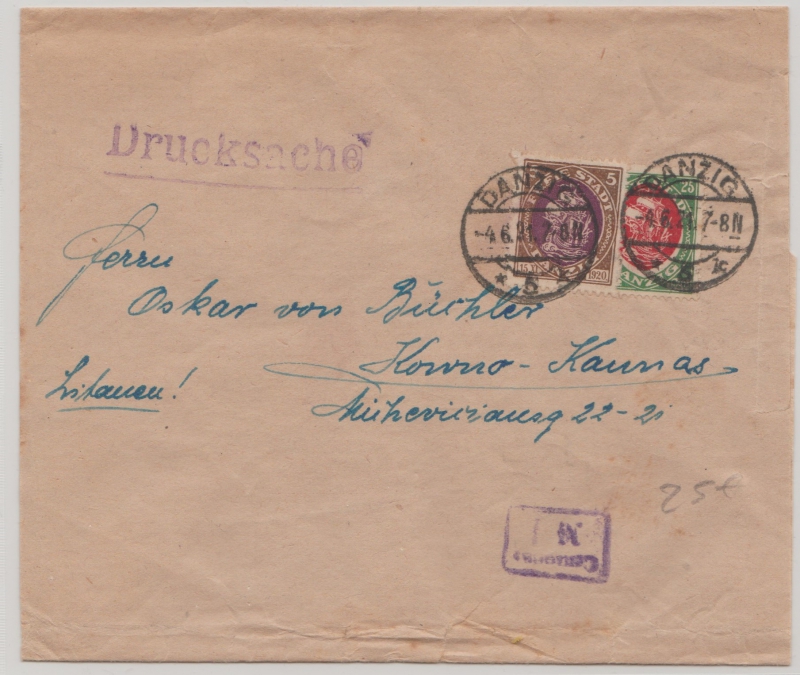 Drucksache
5
25
DANZIG
-4.6.21.7-8N
* 5 1c
DANZIG
-4.6.21.7-8N
* 5 1c
STADT
15.
1920
DANZIG
Herrn
Oskar von Büchler
Kowno-Kaunas
Litauen!
22-21
25